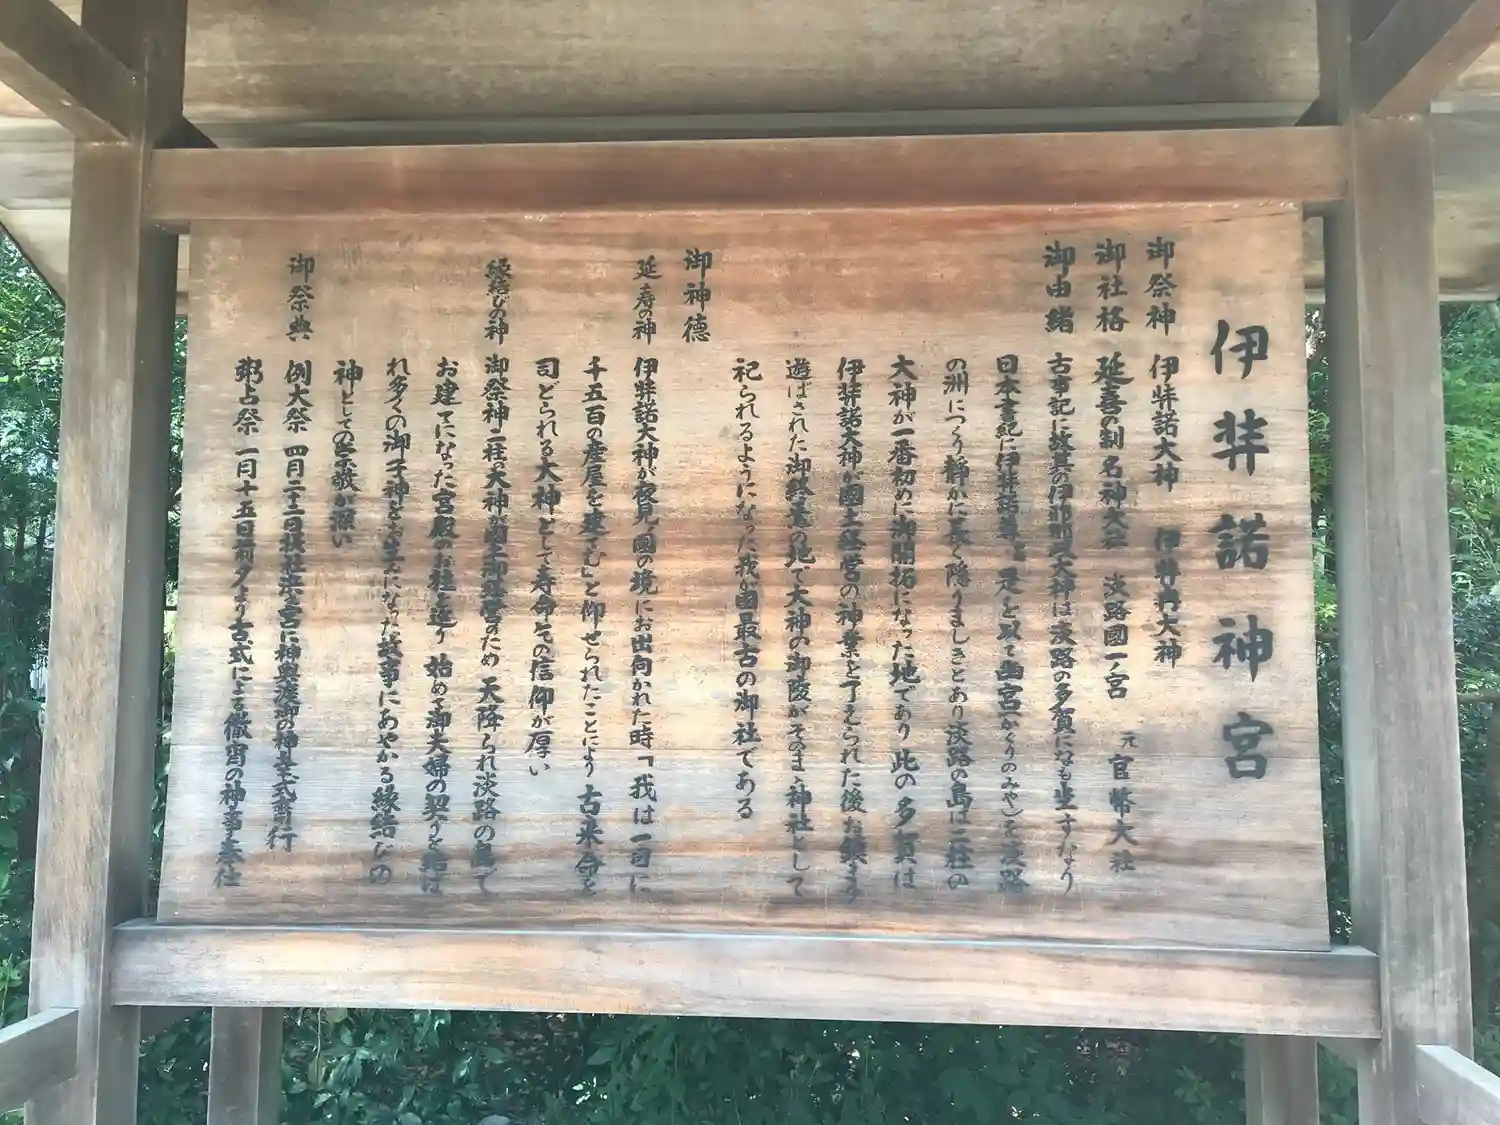 伊弉諾神宮
御祭神 伊弉諾大神 伊弉冉大神
御社格 延喜の制 名神大社 淡路國一ノ宮 元官幣大社
御由緒 古事記に故其の伊耶那岐大神は淡路の多賀になも坐すなり
日本書紀に伊弉諾尊 是を以て幽宮(かくりのみや)を淡路
の洲につくり静かに長く隠りましきとあり淡路の島は二柱の
大神が一番初めに御開拓になった地であり 此の多賀は
伊弉諾大神が國土経営の神業を了えられた後お鎮まり
遊ばされた御終焉の地で大神の御陵がそのまゝ神社として
祀られるようになった我が國最古の御社である
御神徳
延寿の神 伊弉諾大神が夜見ノ國の境にお出向かれた時「我は一日に
千五百の産屋を建てむ」と仰せられたことにより 古来命を
司どられる大神として寿命 の信仰が厚い
縁結びの神 御祭神二柱の大神が國土御経営のため 天降られ淡路の島で
お建てになった宮殿がお社を造り 始めて御夫婦の契りを結ば
れ多くの御子神をお生みになった故事にあやかる縁結びの
神としての崇敬が深い
御祭典 例大祭 四月二十二日 濱宮に神輿渡御の神幸式斎行
粥占祭 一月十五日前夕より古式による徹宵の神事奉仕